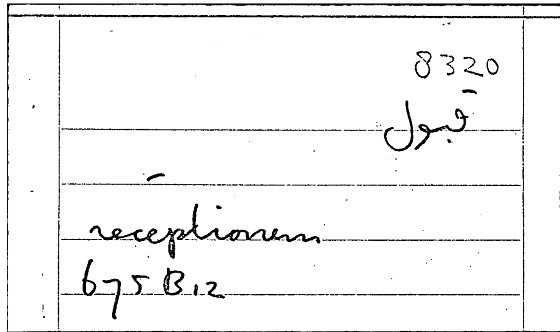 8320
قبول
receptionem
675 B 12